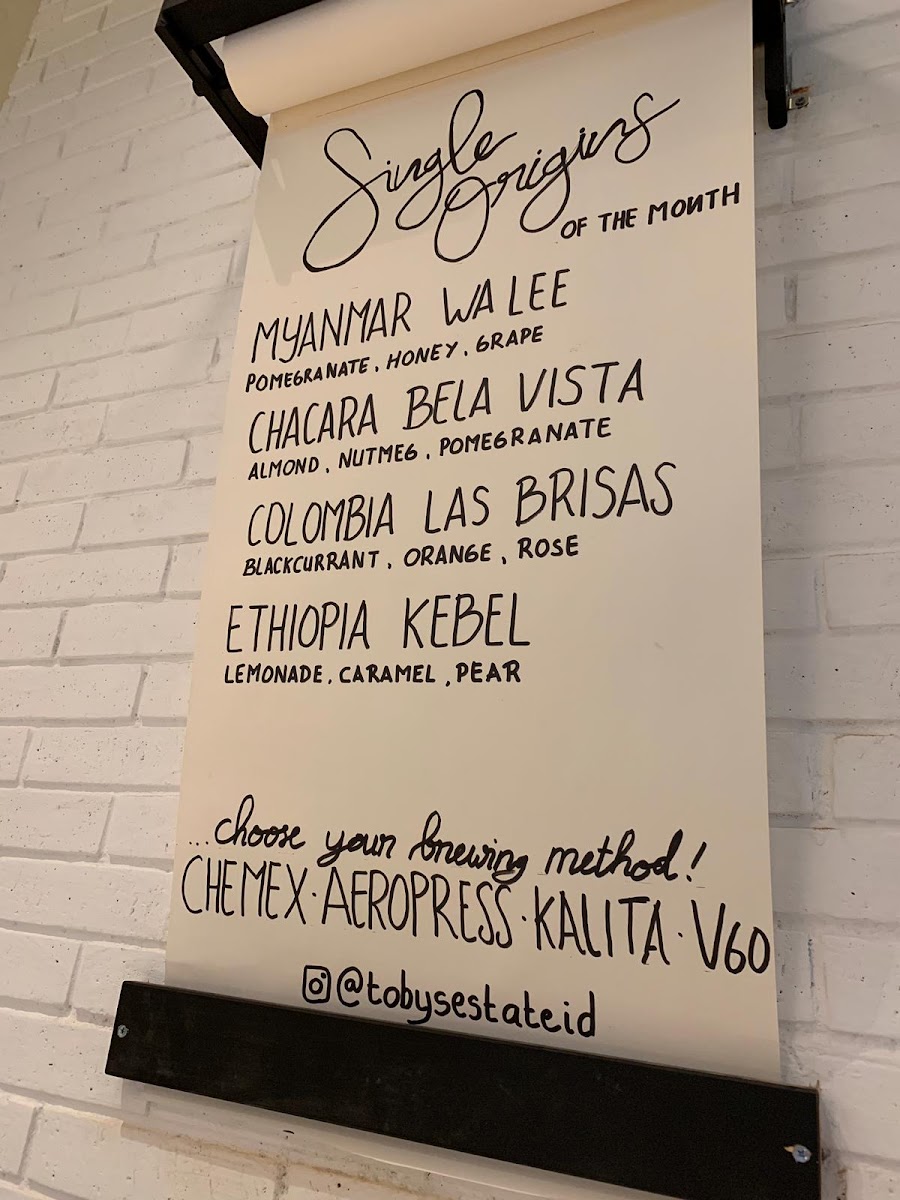 Single
Origins
OF THE MONTH
MYANMAR WA LEE
POMEGRANATE, HONEY, GRAPE
CHACARA BELA VISTA
ALMOND, NUTMEG, POMEGRANATE
COLOMBIA LAS BRISAS
BLACKCURRANT, ORANGE, ROSE
ETHIOPIA KEBEL
LEMONADE, CARAMEL, PEAR
...choose your brewing method!
CHEMEX · AEROPRESS · KALITA · V60
@tobysestateid